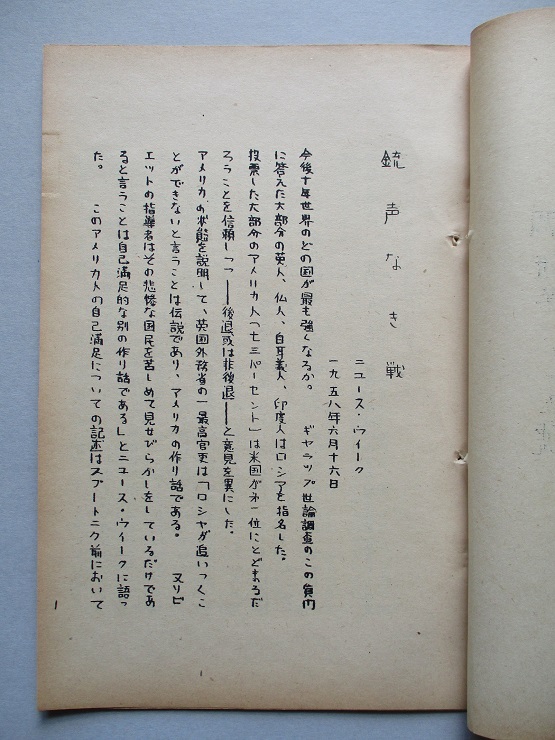 銃声なき戦
ニユース・ウイーク
一九五八年六月十六日
今後十年世界のどの国が最も強くなるか。　ギヤラツプ世論調査のこの質問
に答えた大部分の英人、仏人、白耳義人、印度人はロシアを指名した。
投票した大部分のアメリカ人(七三パーセント)は米国が第一位にとどまるだ
ろうことを信頼しつつ——後退或は非後退——と意見を異にした。
アメリカの状態を説明して、英国外務省の一最高官吏は「ロシヤが追いつくこ
とができないと言うことは伝説であり、アメリカの作り話である。　又ソビ
エツトの指導者はその悲惨な国民を苦しめて見せびらかしをしているだけであ
ると言うことは自己満足的な別の作り話である」とニユース・ウイークに語つ
た。　このアメリカ人の自己満足についての記述はスプートニク前において
1